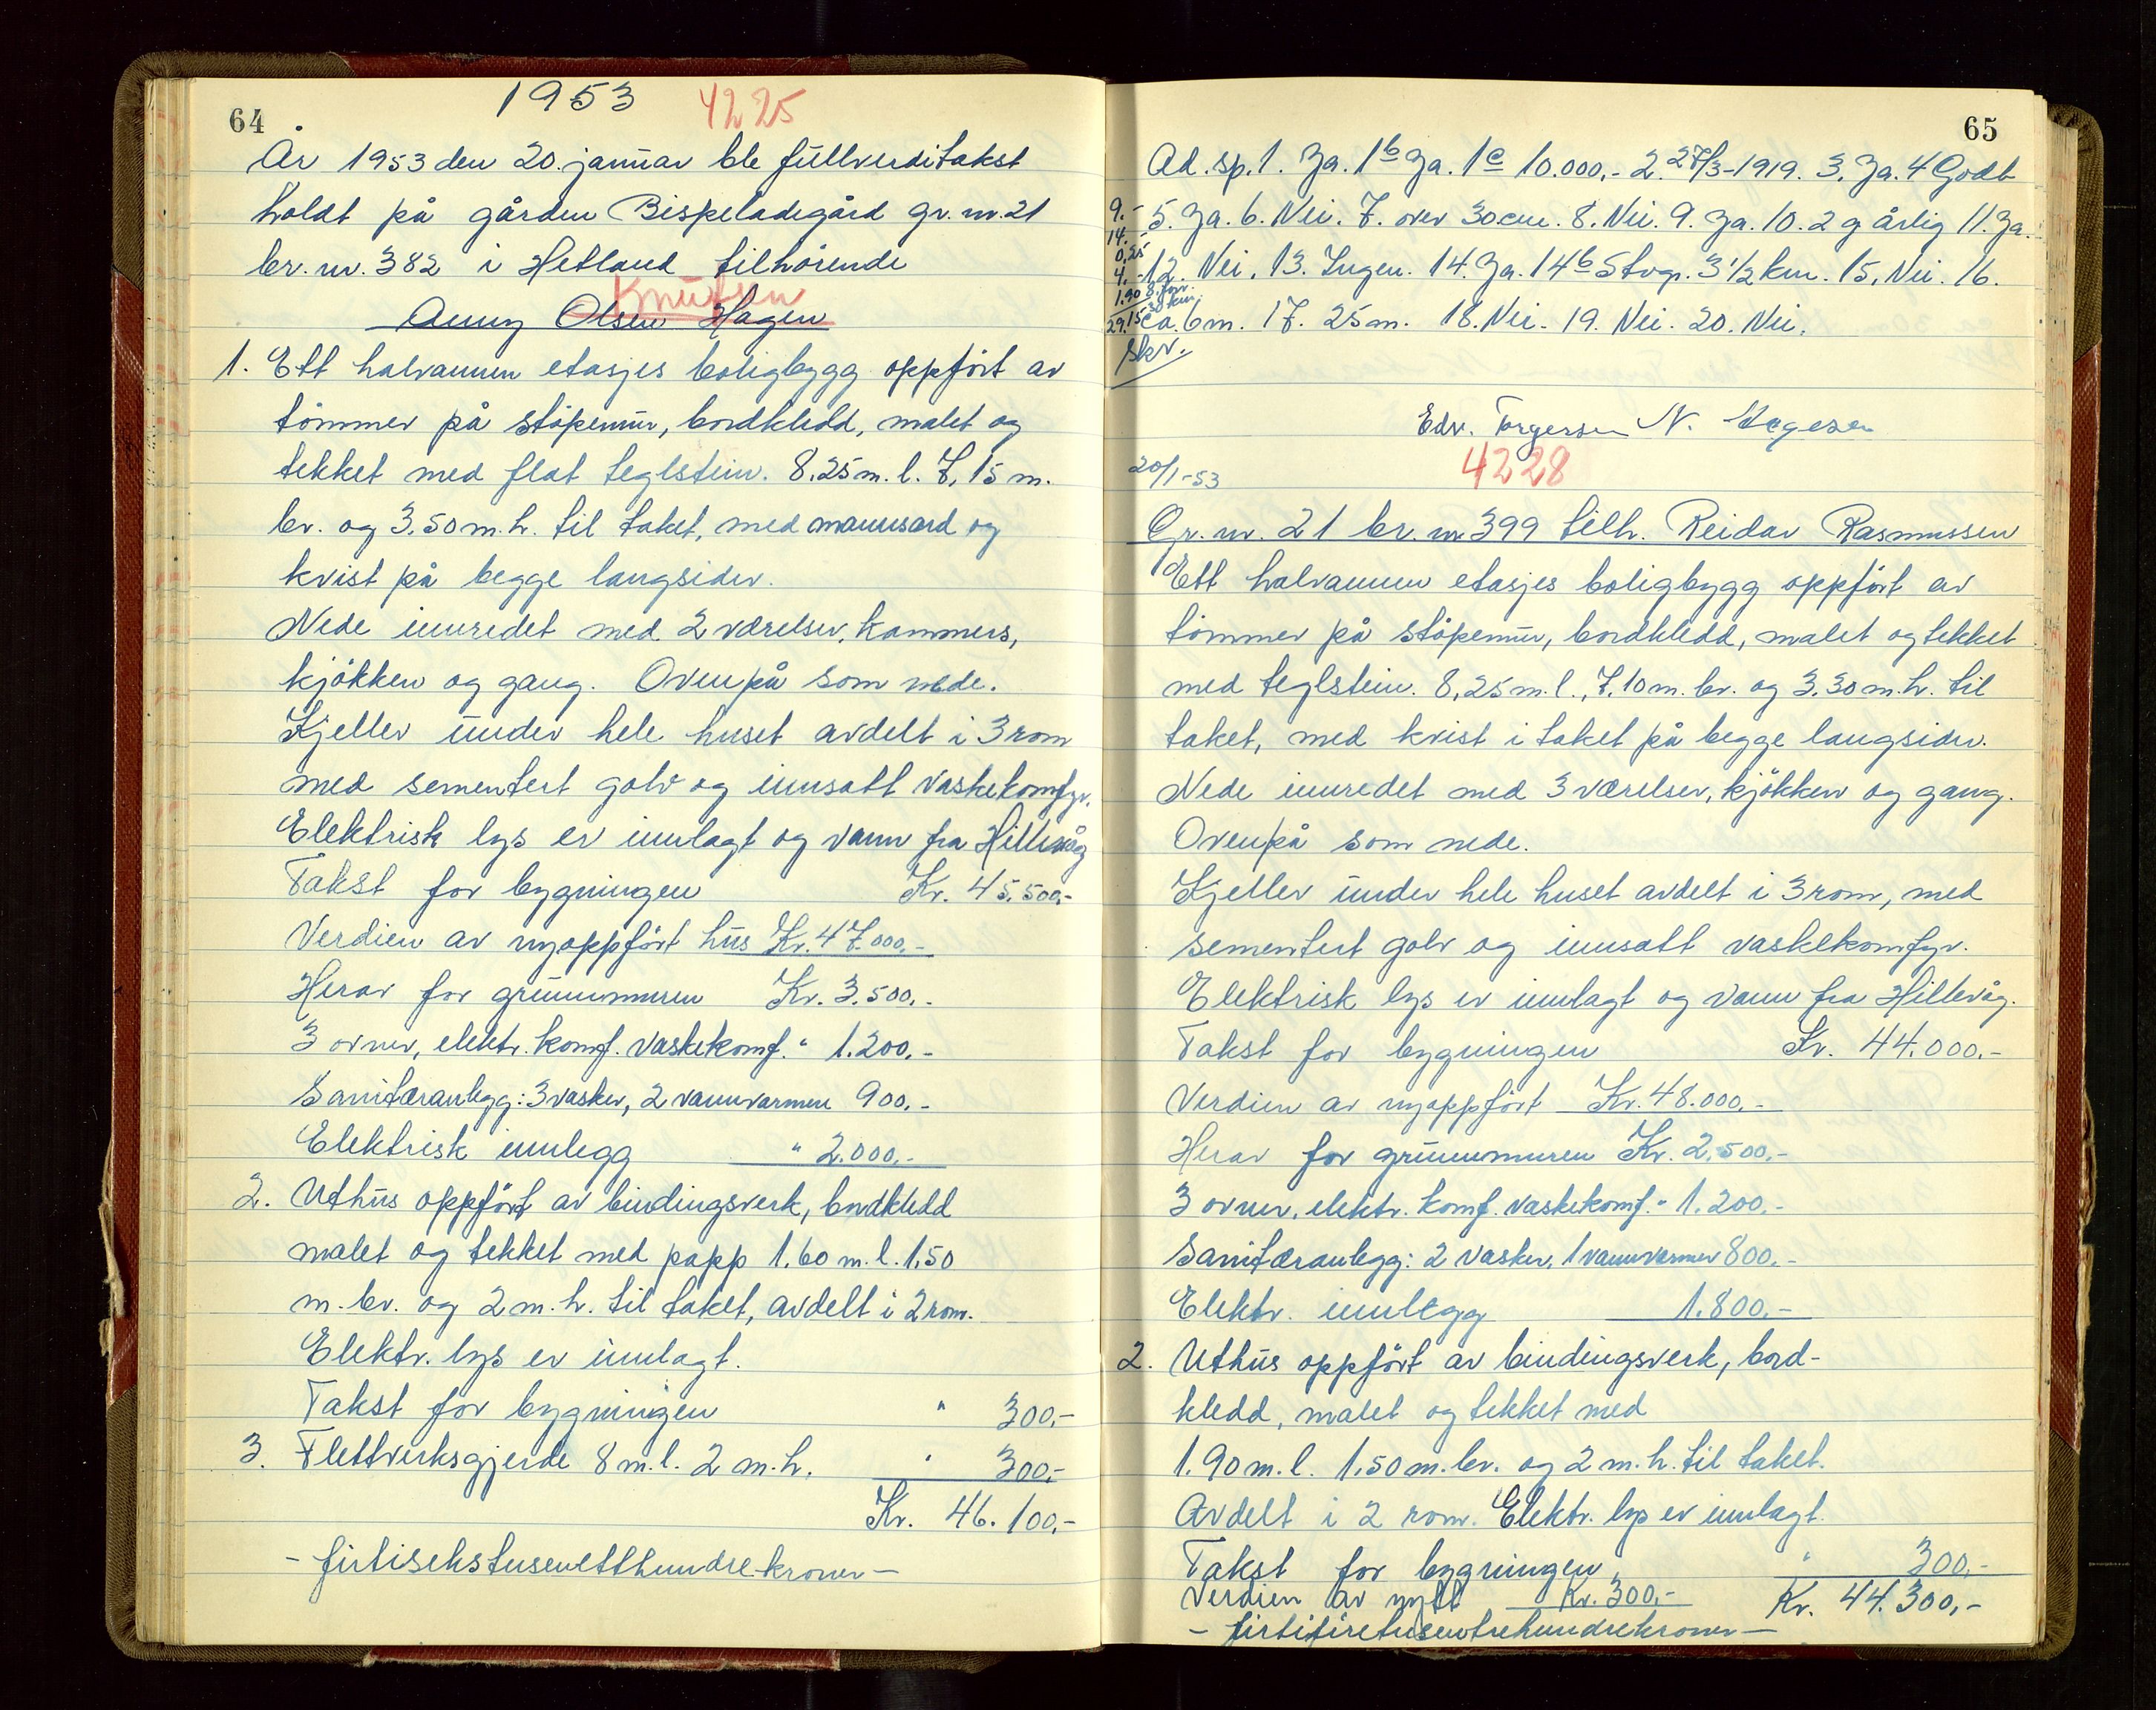 64
1953 4225
År 1953 den 20. januar ble fullverditakst
holdt på gården Bispeladegård gr. nr. 21
br. nr. 382 i Hetland tilhörende
Knutsen
Anny Olsen Hagen
1. Ett halvannen etasjes boligbygg oppfört av
tömmer på stöpemur, bordkledd, malet og
tekket med flat teglstein. 8,25 m. l. 7,15 m.
br. og 3,50 m. h. til taket, med mannsard og
kvist på begge langsider.
Nede innredet med 2 værelser, kammers,
kjökken og gang. Ovenpå som nede.
Kjeller under hele huset avdelt i 3 rom
med sementert golv og innsatt vaskekomfyr.
Elektrisk lys er innlagt og vann fra Hillevåg
Takst for bygningen Kr. 45.500,-
Verdien av nyoppfört hus Kr. 47.000,-
Herav for grunnmuren Kr. 3.500,-
3 ovner, elektr. komf. vaskekomf. " 1.200,-
Sanitæranlegg: 3 vasker, 2 vannvarmere 900,-
Elektrisk innlegg " 2.000,-
2. Uthus oppfört av bindingsverk, bordkledd
malet og tekket med papp 1,60 m. l. 1,50
m. br. og 2 m. h. til taket, avdelt i 2 rom.
Elektr. lys er innlagt.
Takst for bygningen " 300,-
3. Flettverksgjerde 8 m. l. 2 m. h. " 300,-
Kr. 46.100,-
- förtisekstusenetthundre kroner -
65
Ad. sp. 1. Ja. 1b Ja. 1c 10.000,- 2. 27/3-1919. 3. Ja. 4 Godt
5. Ja. 6. Nei. 7. over 30 cm. 8. Nei. 9. Ja. 10. 2 g årlig 11. Ja.
12. Nei. 13. Ingen. 14. Ja. 14b Stvgr. 3 1/2 km. 15. Nei. 16.
ca. 6 m. 17. 25 m. 18. Nei. 19. Nei. 20. Nei.
9.-
14.-
0,25
4.-
1.90 8. forr.
30 km.
29.15
skr.
Edv. Torgersen N.
20/1-53 4228
Gr. nr. 21 br. nr 399 tilh. Reidar Rasmussen
1 Ett halvannen etasjes boligbygg oppfört av
tömmer på stöpemur, bordkledd, malet og tekket
med teglstein. 8,25 m. l., 7,10 m. br. og 3,30 m. h. til
taket, med kvist i taket på begge langsider.
Nede innredet med 3 værelser, kjökken og gang.
Ovenpå som nede.
Kjeller under hele huset avdelt i 3 rom, med
sementert golv og innsatt vaskekomfyr.
Elektrisk lys er innlagt og vann fra Hillevåg.
Takst for bygningen Kr. 44.000,-
Verdien av nyoppfört Kr. 48.000,-
Herav for grunnmuren Kr. 2.500,-
3 ovner, elektr. komf. vaskekomf. " 1.200,-
Sanitæranlegg: 2 vasker, 1 vannvarmer 800,-
Elektr. innlegg 1.800,-
2. Uthus oppfört av bindingsverk, bord-
kledd, malet og tekket med
1.90 m. l. 1,50 m. br. og 2 m. h. til taket.
Avdelt i 2 rom. Elektr. lys er innlagt.
Takst for bygningen " 300,-
Verdien av nytt Kr. 300,- Kr. 44.300,-
- förtifiretusentrehundrekroner -